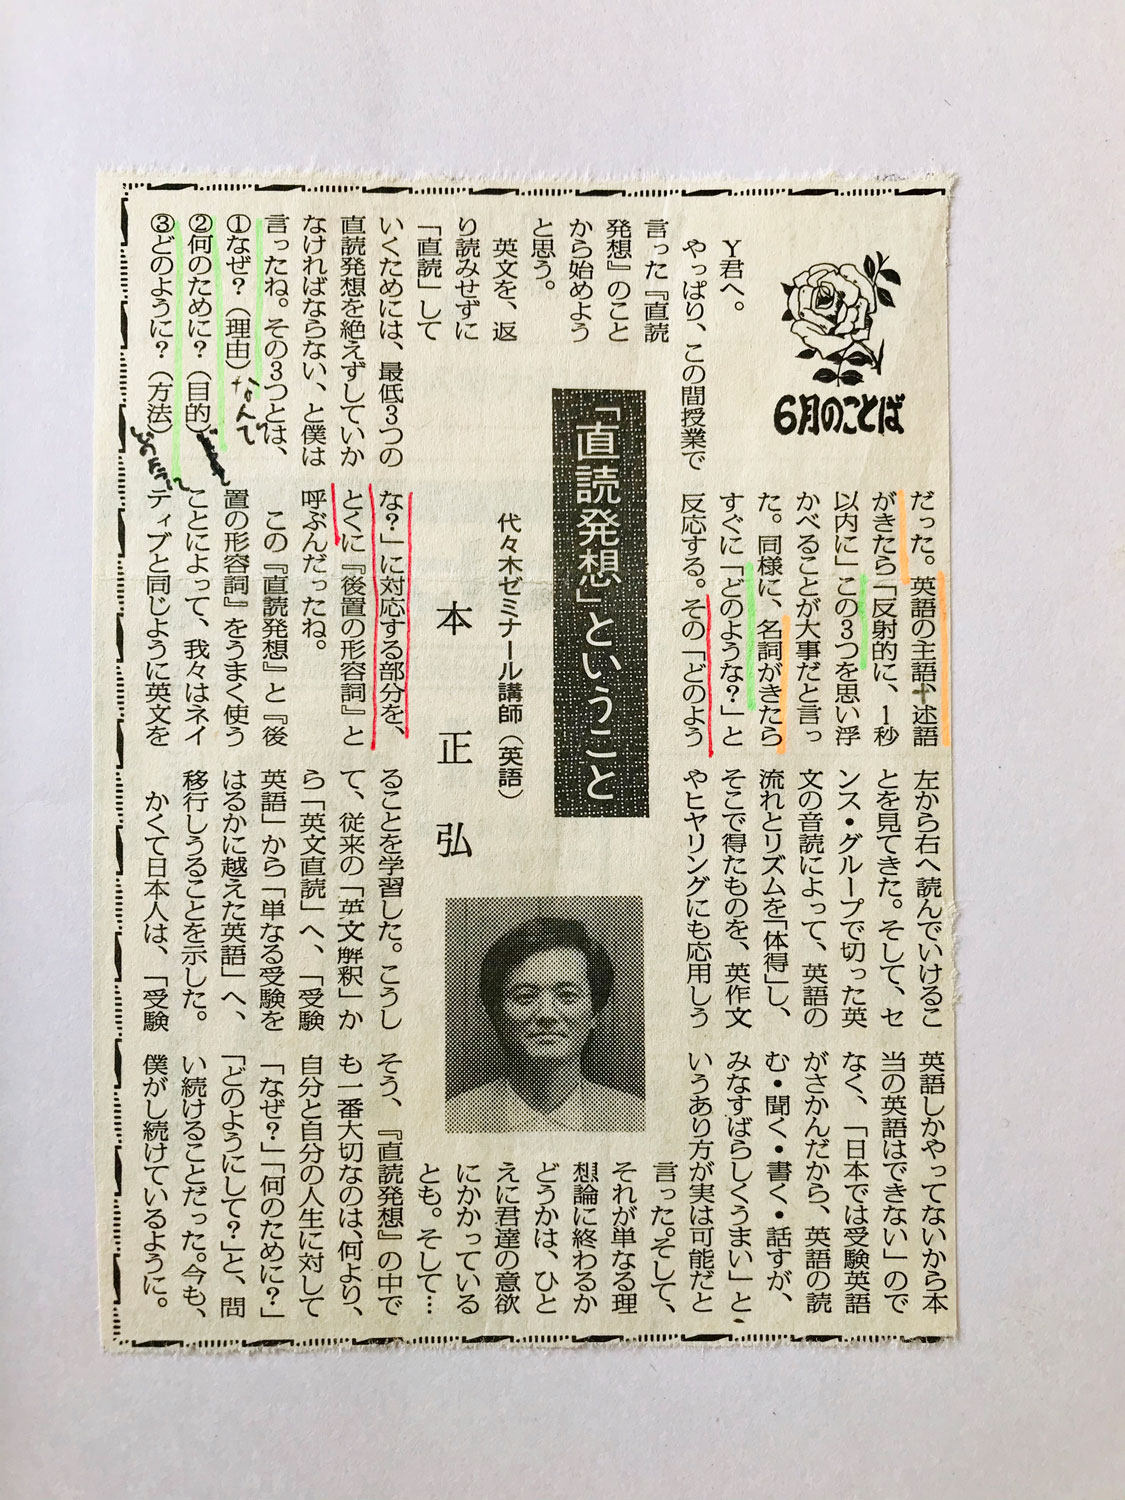 6月のことば
「直読発想」ということ
代々木ゼミナール講師（英語）
本 正 弘
Y君へ。
やっぱり、この間授業で
言った『直読
発想』のこと
から始めよう
と思う。
英文を、返
り読みせずに
「直読」して
いくためには、最低3つの
直読発想を絶えずしていか
なければならない、と僕は
言ったね。その3つとは、
①なぜ？（理由）
なんで
②何のために？（目的）
③どのように？（方法）
どのように
だった。英語の主語+述語
がきたら「反射的に、1秒
以内に」この3つを思い浮
かべることが大事だと言っ
た。同様に、名詞がきたら
すぐに「どのような？」と
反応する。その「どのよう
な？」に対応する部分を、
とくに『後置の形容詞』と
呼ぶんだったね。
この『直読発想』と『後
置の形容詞』をうまく使う
ことによって、我々はネイ
ティブと同じように英文を
左から右へ読んでいけるこ
とを見てきた。そして、セ
ンス・グループで切った英
文の音読によって、英語の
流れとリズムを「体得」し、
そこで得たものを、英作文
やヒヤリングにも応用しう
ることを学習した。こうし
て、従来の「英文解釈」か
ら「英文直読」へ、「受験
英語」から「単なる受験を
はるかに越えた英語」へ、
移行しうることを示した。
かくて日本人は、「受験
英語しかやってないから本
当の英語はできない」ので
なく、「日本では受験英語
がさかんだから、英語の読
む・聞く・書く・話すが、
みなすばらしくうまい」と
いうあり方が実は可能だと
言った。そして、
それが単なる理
想論に終わるか
どうかは、ひと
えに君達の意欲
にかかっている
とも。そして…
そう、『直読発想』の中で
も一番大切なのは、何より、
自分と自分の人生に対して
「なぜ？」「何のために？」
「どのようにして？」と、問
い続けることだった。今も、
僕がし続けているように。